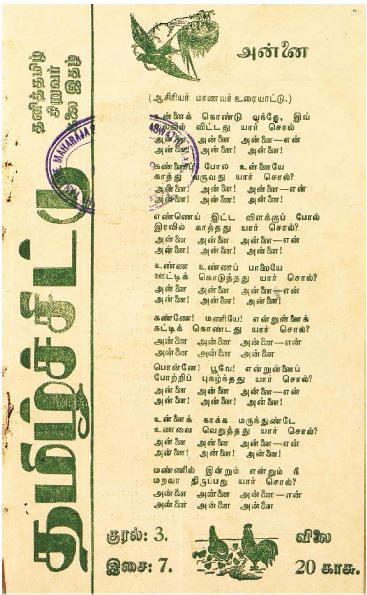 தனித்தமிழ்
சிறுவர்
கலை இதழ்
தமிழ்ச்சிட்டு
அன்னை
(ஆசிரியர் மாணவர் உரையாட்டு.)
உன்னைக் கொண்டு வந்தே, இவ்
விட்டது யார் சொல்
அன்னை அன்னை அன்னை—என்
அன்னை! அன்னை! அன்னை!
கண்ணைப் போல உன்னையே
காத்து வருவது யார் சொல்?
அன்னை! அன்னை! அன்னை—என்
அன்னை! அன்னை! அன்னை!
எண்ணெய் இட்ட விளக்குப் போல்
இரவில் காத்தது யார் சொல்?
அன்னை அன்னை அன்னை—என்
அன்னை! அன்னை! அன்னை!
உண்ண உண்ணப் பாலையே
ஊட்டிக் கொடுத்தது யார் சொல்?
அன்னை அன்னை அன்னை—என்
அன்னை! அன்னை! அன்னை!
கண்ணே! மணியே! என்றுன்னைக்
கட்டிக் கொண்டது யார் சொல்?
அன்னை அன்னை அன்னை—என்
அன்னை அன்னை அன்னை
பொன்னே! பூவே! என்றுன்னைப்
போற்றிப் புகழ்ந்தது யார் சொல்?
அன்னை அன்னை அன்னை—என்
அன்னை! அன்னை! அன்னை!
உன்னைக் காக்க மருந்துண்டே
உணவை வெறுத்தது யார் சொல்?
அன்னை அன்னை அன்னை—என்
அன்னை! அன்னை! அன்னை!
மண்ணில் இன்றும் என்றும் நீ
மறவா திருப்பது யார் சொல்?
அன்னை அன்னை அன்னை—என்
அன்னை அன்னை அன்னை!
குரல்: 3.
இசை: 7.
விலை
20 காசு.